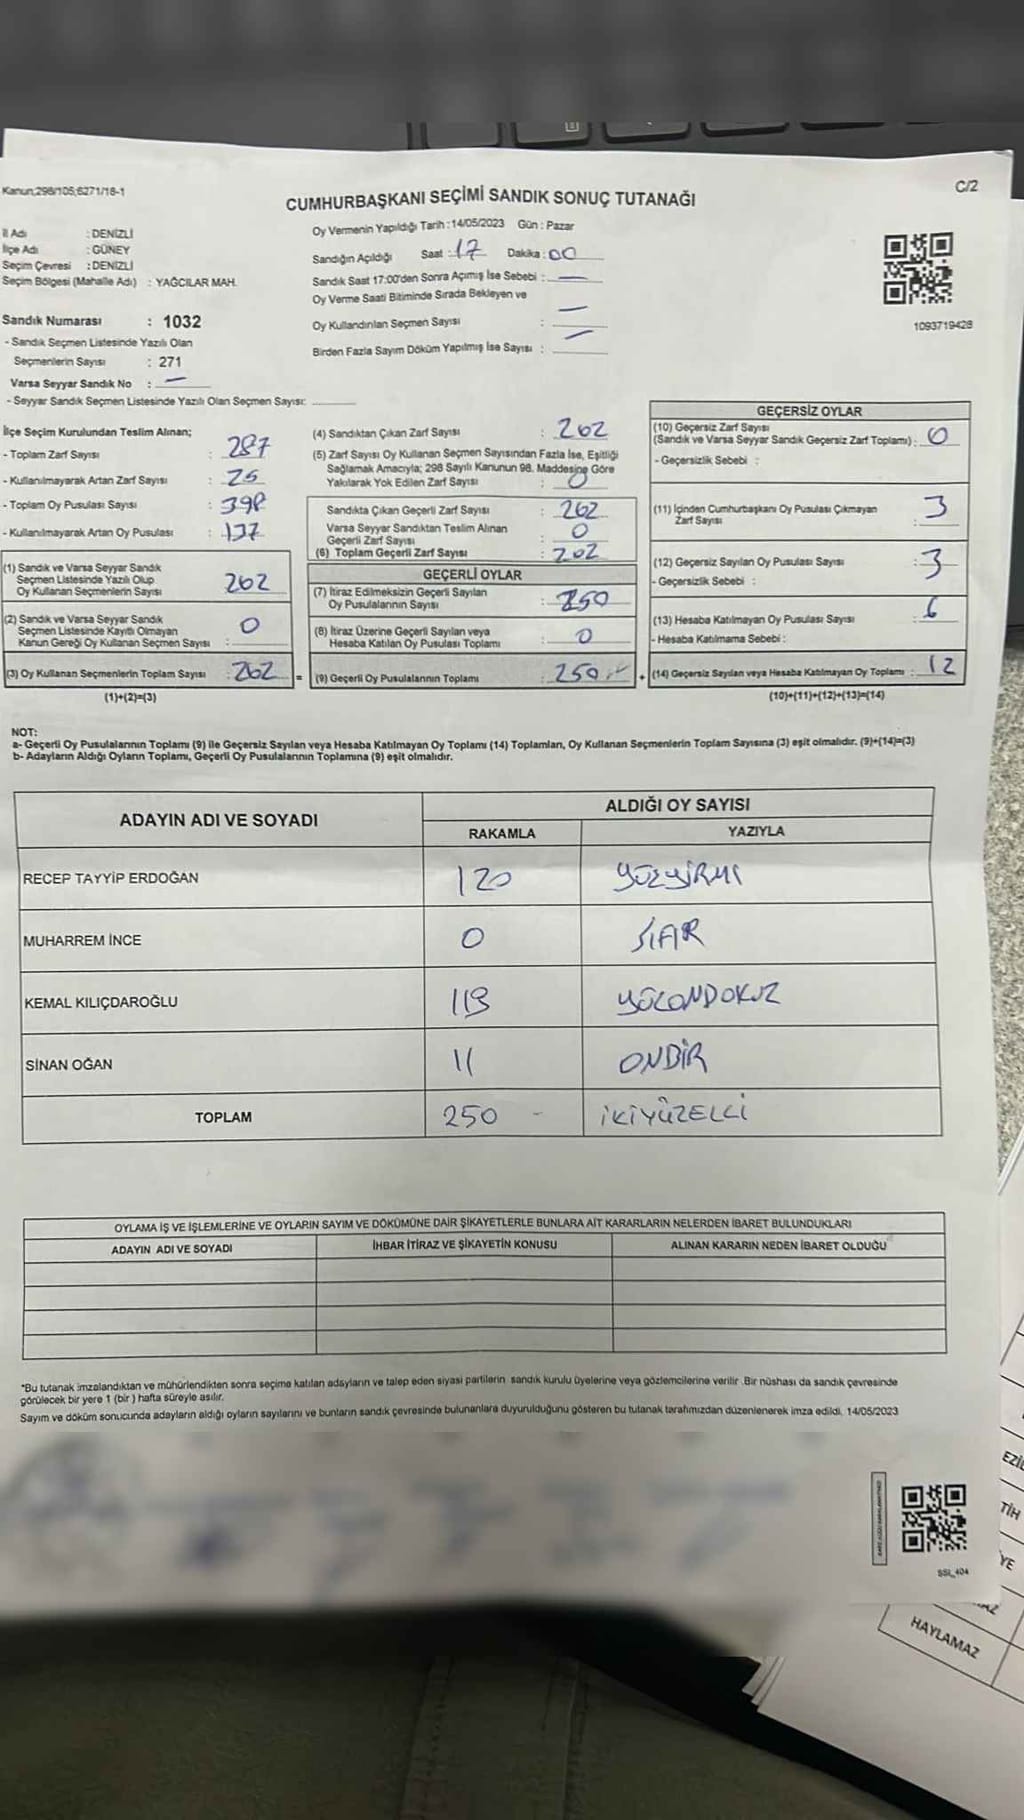 Kanun;298/105;6271/18-1
C/2
CUMHURBAŞKANI SEÇİMİ SANDIK SONUÇ TUTANAĞI
İl Adı : DENİZLİ
İlçe Adı : GÜNEY
Seçim Çevresi : DENİZLİ
Seçim Bölgesi (Mahalle Adı) : YAĞCILAR MAH.
Sandık Numarası : 1032
- Sandık Seçmen Listesinde Yazılı Olan
Seçmenlerin Sayısı : 271
Varsa Seyyar Sandık No : —
- Seyyar Sandık Seçmen Listesinde Yazılı Olan Seçmen Sayısı:
Oy Vermenin Yapıldığı Tarih : 14/05/2023 Gün : Pazar
Sandığın Açıldığı Saat : 17 Dakika : 00
Sandık Saat 17:00'den Sonra Açımış İse Sebebi : —
Oy Verme Saati Bitiminde Sırada Bekleyen ve
Oy Kullandırılan Seçmen Sayısı : —
Birden Fazla Sayım Döküm Yapılmış İse Sayısı : —
1093719428
İlçe Seçim Kurulundan Teslim Alınan;
- Toplam Zarf Sayısı : 287
- Kullanılmayarak Artan Zarf Sayısı : 25
- Toplam Oy Pusulası Sayısı : 398
- Kullanılmayarak Artan Oy Pusulası : 137
(1) Sandık ve Varsa Seyyar Sandık
Seçmen Listesinde Yazılı Olup
Oy Kullanan Seçmenlerin Sayısı 262
(2) Sandık ve Varsa Seyyar Sandık
Seçmen Listesinde Kayıtlı Olmayan
Kanun Gereği Oy Kullanan Seçmen Sayısı : 0
(3) Oy Kullanan Seçmenlerin Toplam Sayısı : 262 =
(1)+(2)=(3)
(4) Sandıktan Çıkan Zarf Sayısı : 262
(5) Zarf Sayısı Oy Kullanan Seçmen Sayısından Fazla İse, Eşitliği
Sağlamak Amacıyla; 298 Sayılı Kanunun 98. Maddesine Göre
Yakılarak Yok Edilen Zarf Sayısı : 0
Sandıkta Çıkan Geçerli Zarf Sayısı : 262
Varsa Seyyar Sandıktan Teslim Alınan
Geçerli Zarf Sayısı : 0
(6) Toplam Geçerli Zarf Sayısı : 262
GEÇERLİ OYLAR
(7) İtiraz Edilmeksizin Geçerli Sayılan
Oy Pusulalarının Sayısı : 250
(8) İtiraz Üzerine Geçerli Sayılan veya
Hesaba Katılan Oy Pusulası Toplamı : 0
(9) Geçerli Oy Pusulalarının Toplamı : 250 +
GEÇERSİZ OYLAR
(10) Geçersiz Zarf Sayısı
(Sandık ve Varsa Seyyar Sandık Geçersiz Zarf Toplamı) : 0
- Geçersizlik Sebebi :
(11) İçinden Cumhurbaşkanı Oy Pusulası Çıkmayan
Zarf Sayısı : 3
(12) Geçersiz Sayılan Oy Pusulası Sayısı : 3
- Geçersizlik Sebebi :
(13) Hesaba Katılmayan Oy Pusulası Sayısı : 6
- Hesaba Katılmama Sebebi :
(14) Geçersiz Sayılan veya Hesaba Katılmayan Oy Toplamı : 12
(10)+(11)+(12)+(13)=(14)
NOT:
a- Geçerli Oy Pusulalarının Toplamı (9) ile Geçersiz Sayılan veya Hesaba Katılmayan Oy Toplamı (14) Toplamları, Oy Kullanan Seçmenlerin Toplam Sayısına (3) eşit olmalıdır. (9)+(14)=(3)
b- Adayların Aldığı Oyların Toplamı, Geçerli Oy Pusulalarının Toplamına (9) eşit olmalıdır.
ADAYIN ADI VE SOYADI
ALDIĞI OY SAYISI
RAKAMLA YAZIYLA
RECEP TAYYİP ERDOĞAN 120 YÜZYİRMİ
MUHARREM İNCE 0 SIFIR
KEMAL KILIÇDAROĞLU 119 YÜZONDOKUZ
SİNAN OĞAN 11 ONBİR
TOPLAM 250 - İKİYÜZELLİ
OYLAMA İŞ VE İŞLEMLERİNE VE OYLARIN SAYIM VE DÖKÜMÜNE DAİR ŞİKAYETLERLE BUNLARA AİT KARARLARIN NELERDEN İBARET BULUNDUKLARI
ADAYIN ADI VE SOYADI İHBAR İTİRAZ VE ŞİKAYETİN KONUSU ALINAN KARARIN NEDEN İBARET OLDUĞU
*Bu tutanak imzalandıktan ve mühürlendikten sonra seçime katılan adayların ve talep eden siyasi partilerin sandık kurulu üyelerine veya gözlemcilerine verilir .Bir nüshası da sandık çevresinde
görülecek bir yere 1 (bir ) hafta süreyle asılır.
Sayım ve döküm sonucunda adayların aldığı oyların sayılarını ve bunların sandık çevresinde bulunanlara duyurulduğunu gösteren bu tutanak tarafımızdan düzenlenerek imza edildi. 14/05/2023
SSI_404
HAYLAMAZ